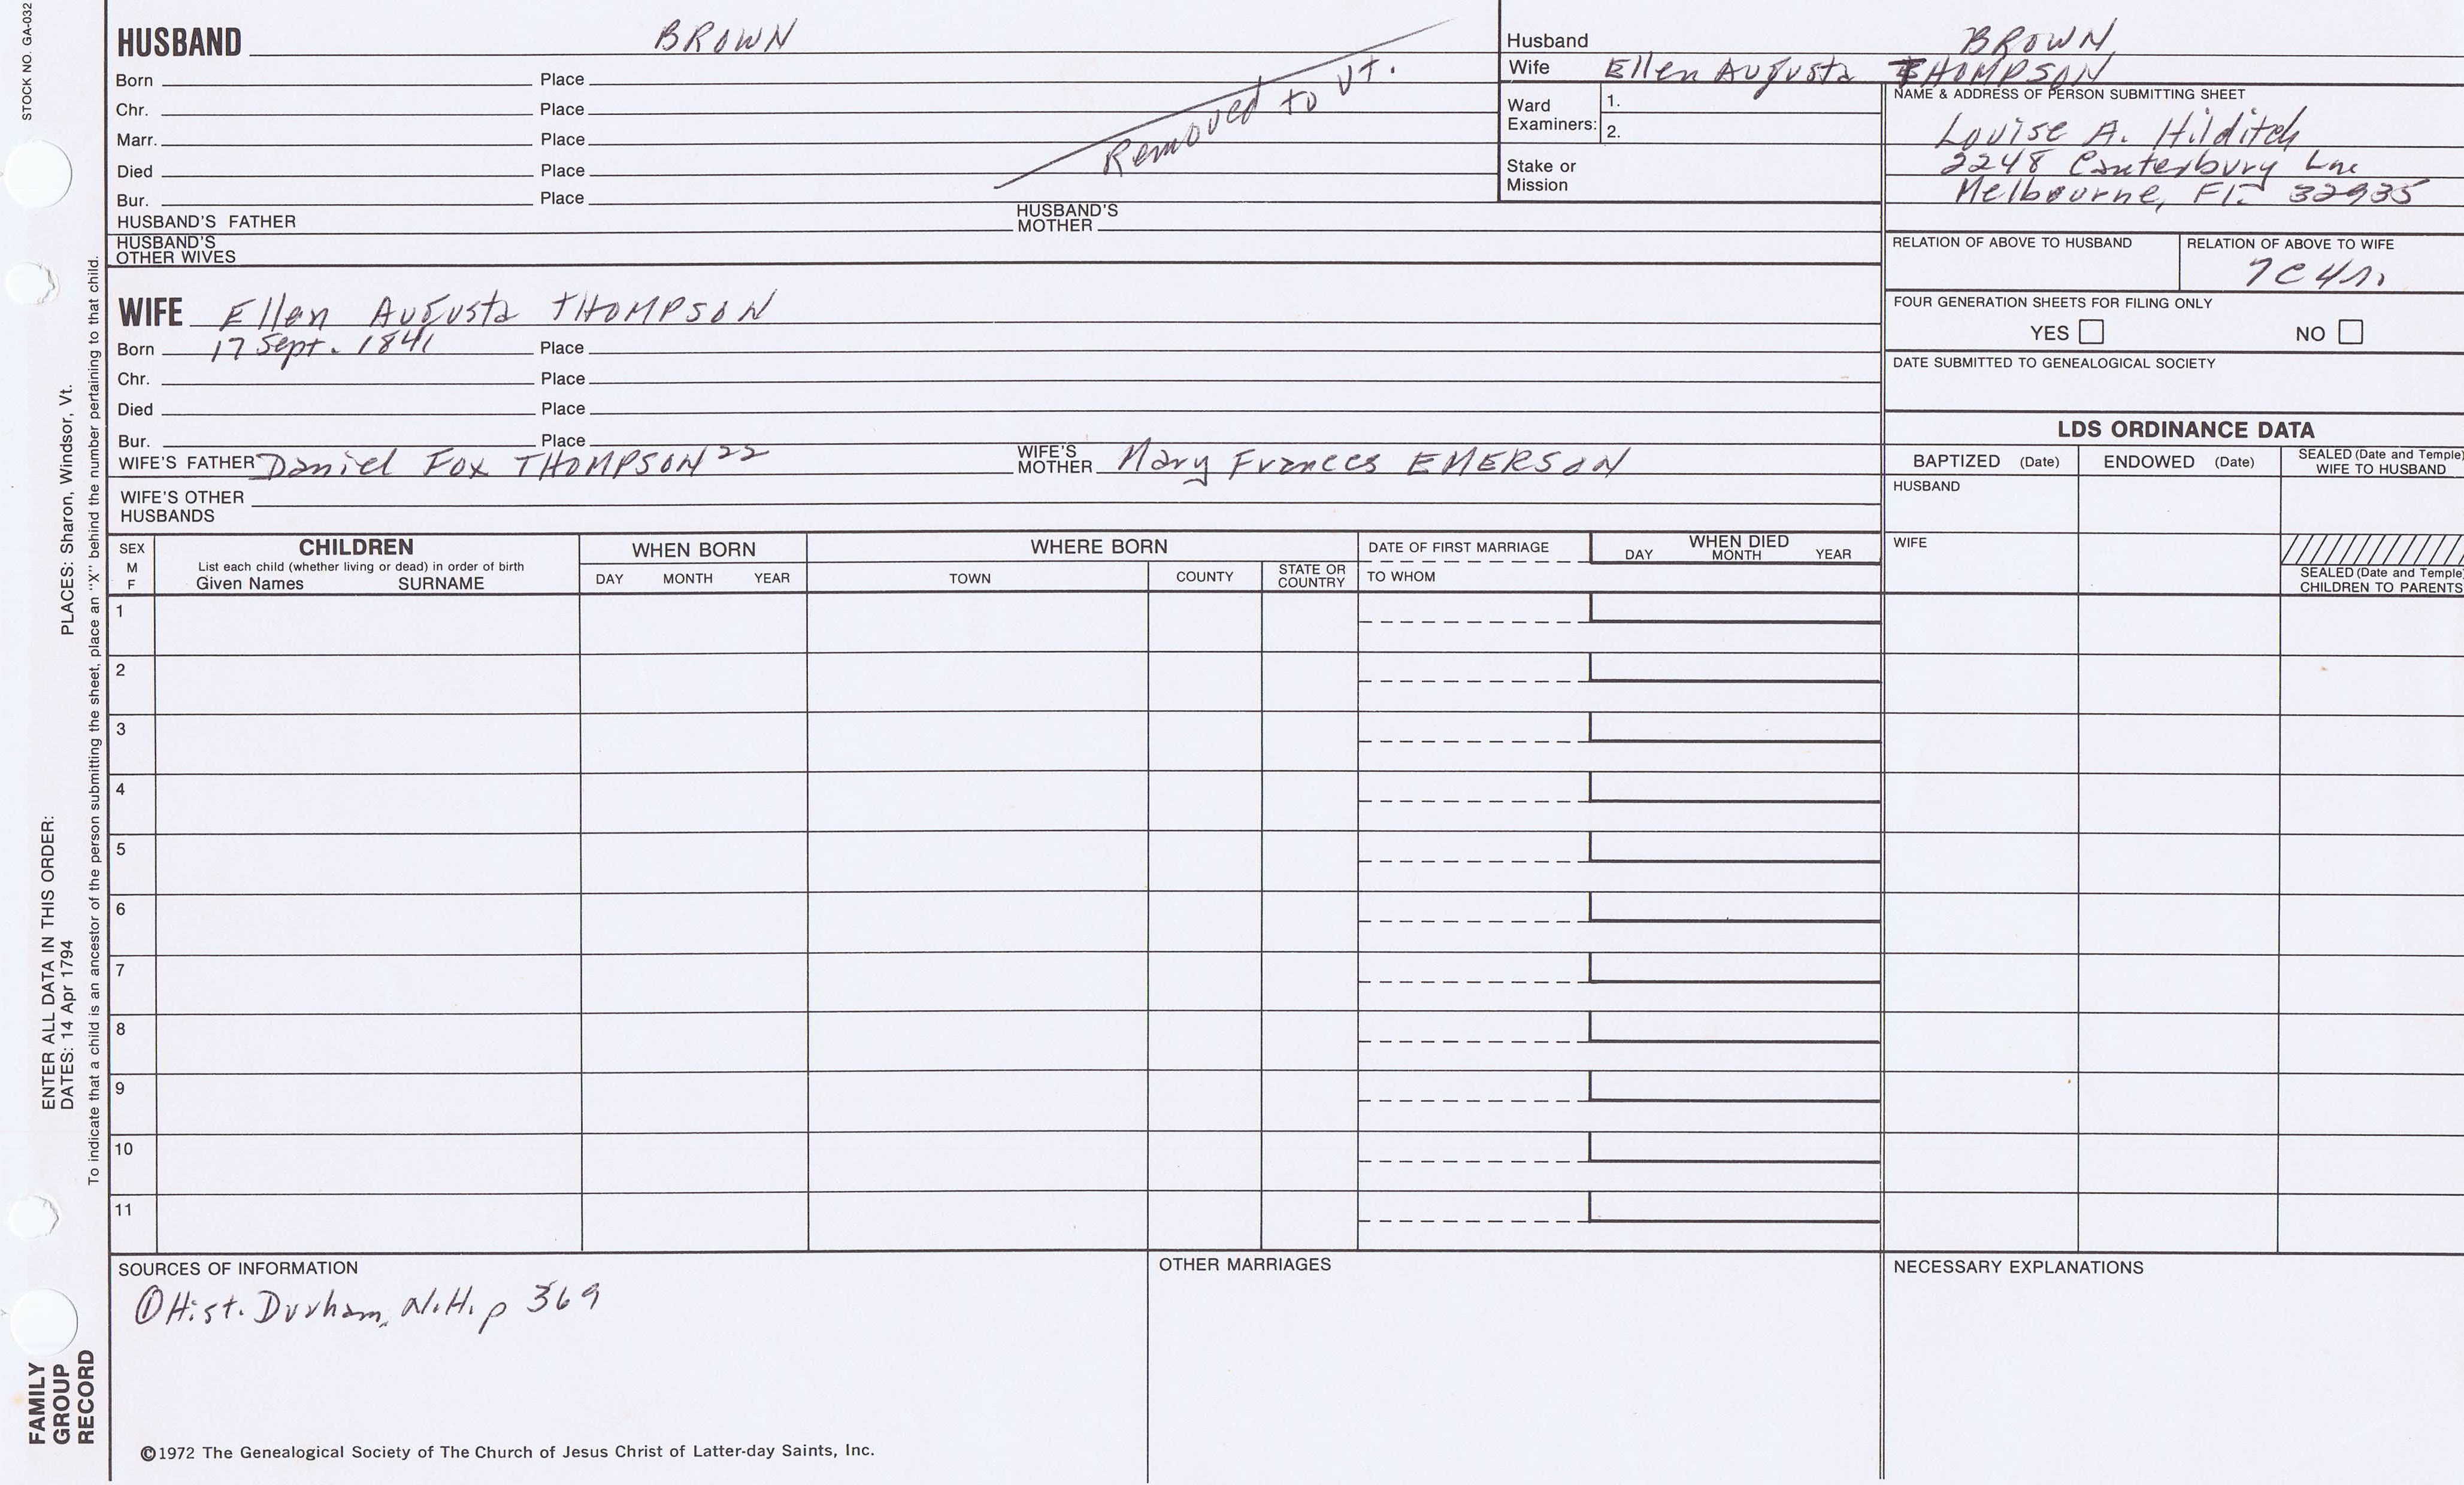 STOCK NO. GA-032
HUSBAND BROWN
Born Place
Chr. Place
Marr. Place
Died Place
Bur. Place
Removed to Vt.
HUSBAND'S FATHER
HUSBAND'S MOTHER
HUSBAND'S OTHER WIVES
Husband BROWN
Wife Ellen Augusta THOMPSON
Ward Examiners: 1.
2.
Stake or Mission
NAME & ADDRESS OF PERSON SUBMITTING SHEET
Louise A. Hilditch
2248 Canterbury Lne
Melbourne, Fl. 32935
RELATION OF ABOVE TO HUSBAND
RELATION OF ABOVE TO WIFE
7C4r.
FOUR GENERATION SHEETS FOR FILING ONLY
YES NO
DATE SUBMITTED TO GENEALOGICAL SOCIETY
WIFE Ellen Augusta THOMPSON
Born 17 Sept. 1841 Place
Chr. Place
Died Place
Bur. Place
WIFE'S FATHER Daniel Fox THOMPSON 22
WIFE'S MOTHER Mary Frances EMERSON
WIFE'S OTHER HUSBANDS
LDS ORDINANCE DATA
BAPTIZED (Date) ENDOWED (Date) SEALED (Date and Temple) WIFE TO HUSBAND
HUSBAND
WIFE
SEALED (Date and Temple) CHILDREN TO PARENTS
SEX
M
F
CHILDREN
List each child (whether living or dead) in order of birth
Given Names SURNAME
WHEN BORN
DAY MONTH YEAR
WHERE BORN
TOWN COUNTY STATE OR COUNTRY
DATE OF FIRST MARRIAGE
TO WHOM
WHEN DIED
DAY MONTH YEAR
1
2
3
4
5
6
7
8
9
10
11
SOURCES OF INFORMATION
① Hist. Durham, N.H. p 369
OTHER MARRIAGES
NECESSARY EXPLANATIONS
©1972 The Genealogical Society of The Church of Jesus Christ of Latter-day Saints, Inc.
FAMILY
GROUP
RECORD
ENTER ALL DATA IN THIS ORDER:
DATES: 14 Apr 1794 PLACES: Sharon, Windsor, Vt.
To indicate that a child is an ancestor of the person submitting the sheet, place an "X" behind the number pertaining to that child.